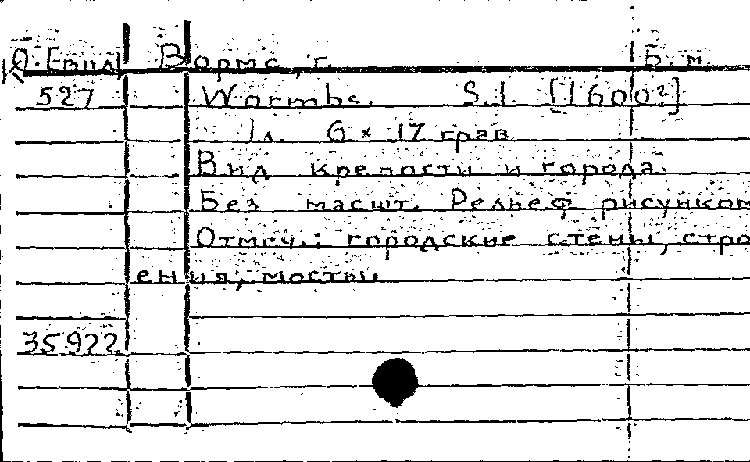 О.Евид Вормс, г. Б.м.
527 Wormbs. S.l. [1600?]
1л. 6 × 17 грав.
Вид крепости и города.
Без масшт. Рельеф рисунком
Отмеч.: городские стены, стро
ения, мосты
35922